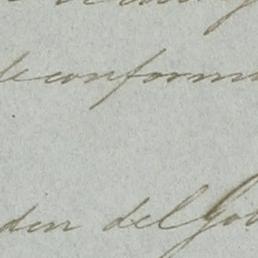 de conform
den del Gob